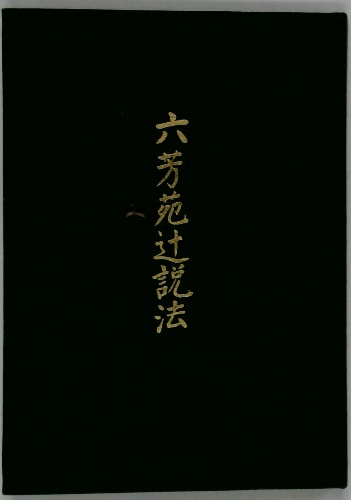 六芳苑辻説法